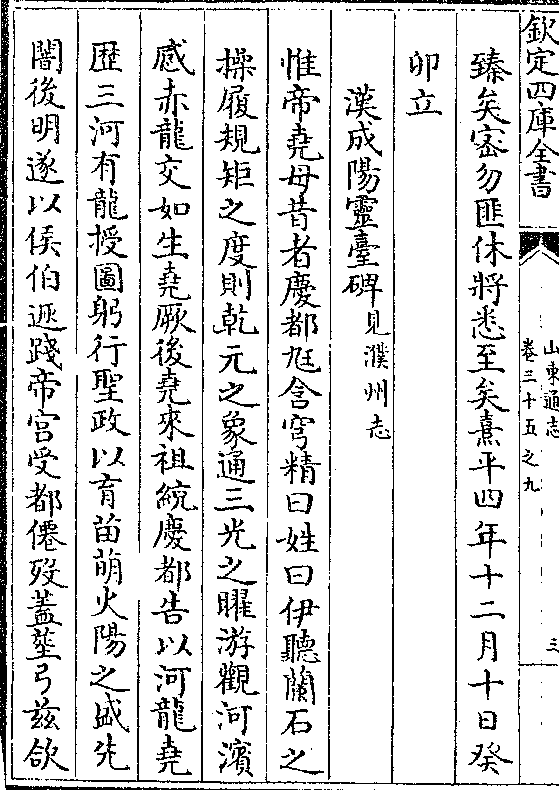 欽定四庫全書
山東通志
卷三十五之九
三
臻矣宻勿匪休將悉至矣熹平四年十二月十日癸
卯立
漢成陽靈臺碑見濮州志
惟帝堯母昔者慶都兊含穹精曰姓曰伊聽蘭石之
操履規矩之度則乾元之象通三光之曜游觀河濱
感赤龍交如生堯厥後堯來祖統慶都告以河龍堯
歴三河有龍授圖躬行聖政以育苗萌火陽之盛先
闇後明遂以侯伯遞踐帝宫受都僊歿蓋塟弓兹欲